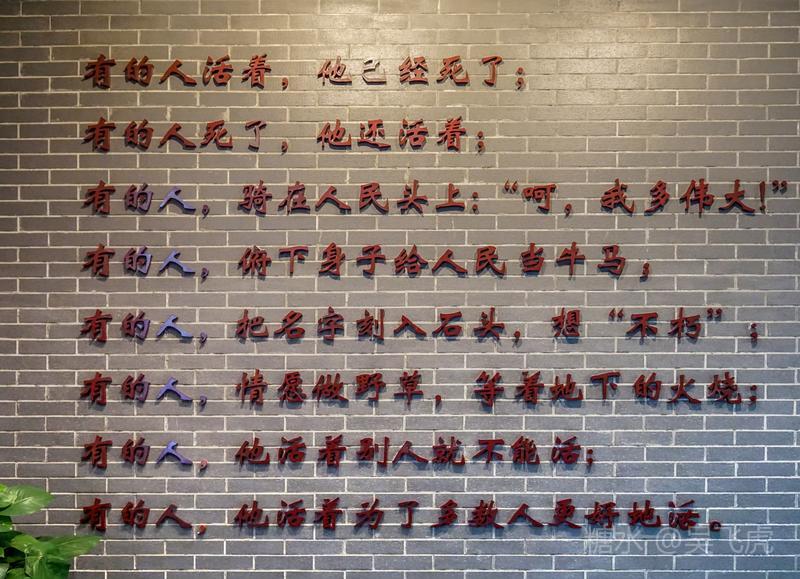 有的人活着，他已经死了；
有的人死了，他还活着；
有的人，骑在人民头上：“呵，我多伟大！”
有的人，俯下身子给人民当牛马；
有的人，把名字刻入石头，想“不朽”；
有的人，情愿做野草，等着地下的火烧；
有的人，他活着别人就不能活；
有的人，他活着为了多数人更好地活。
糖水 @吴飞虎